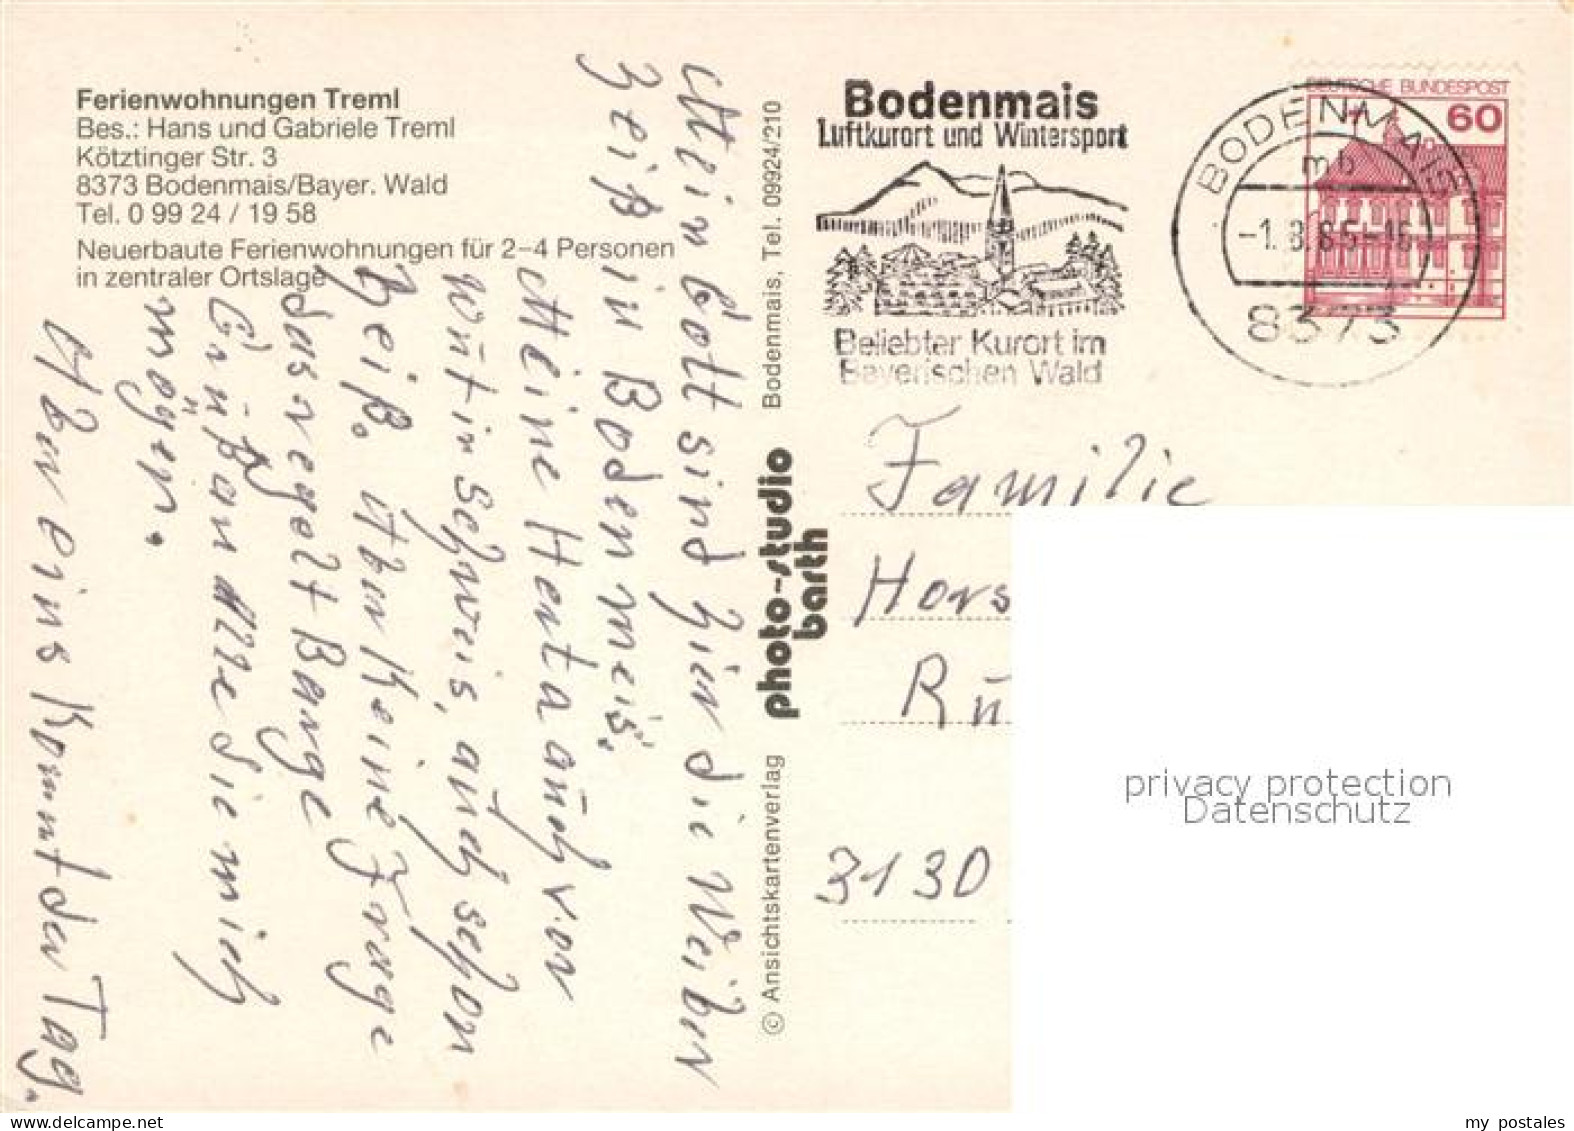 Ferienwohnungen Treml
Bes.: Hans und Gabriele Treml
Kötztinger Str. 3
8373 Bodenmais/Bayer. Wald
Tel. 0 99 24 / 19 58
Neuerbaute Ferienwohnungen für 2–4 Personen
in zentraler Ortslage
Mein Gott sind hier die Weiber
heiß in Bodenmeis.
Meine Herta auch von
wort in Schweis, auch schon
heiß. Aber keine Frage
das regelt Bange
Grüßen Alle die mich
mögen.
Aber eins kommt der Tag.
© Ansichtskartenverlag
photo-studio
barth
Bodenmais, Tel. 09924/210
Bodenmais
Luftkurort und Wintersport
Beliebter Kurort im
Bayerischen Wald
DEUTSCHE BUNDESPOST
60
BODENMAIS
mb
-1.8.85-16
8373
Familie
Hors
Rü
3130
privacy protection
Datenschutz
delcampe.net
my postales